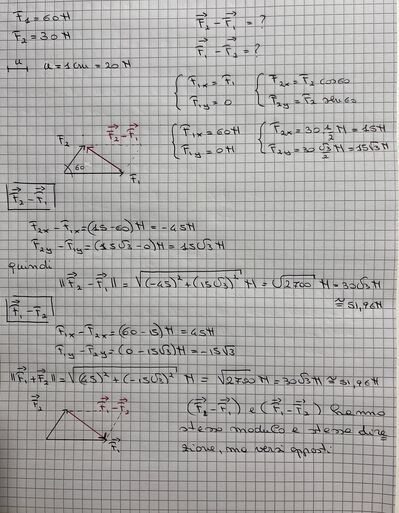 F₁ = 60 N
F⃗₂ - F⃗₁ = ?
F₂ = 30 N
F⃗₁ - F⃗₂ = ?
u
u = 1 cm = 20 N
{ F₁ₓ = F₁
F₁y = 0
{ F₂ₓ = F₂ cos60
F₂y = F₂ sen60
{ F₁ₓ = 60 N
F₁y = 0 N
{ F₂ₓ = 30 1/2 N = 15 N
F₂y = 30 √3/2 N = 15√3 N
F₂
F⃗₂ - F⃗₁
60
F₁
F⃗₂ - F⃗₁
F₂ₓ - F₁ₓ = (15-60) N = -45 N
F₂y - F₁y = (15√3 - 0) N = 15√3 N
quindi
||F⃗₂ - F⃗₁|| = √((-45)² + (15√3)²) N = √2700 N = 30√3 N
≅ 51,96 N
F⃗₁ - F⃗₂
F₁ₓ - F₂ₓ = (60-15) N = 45 N
F₁y - F₂y = (0 - 15√3) N = -15√3
||F⃗₁ + F⃗₂|| = √((45)² + (-15√3)²) N = √2700 N = 30√3 N ≅ 51,96 N
F⃗₂
F⃗₁ - F⃗₂
F⃗₁
(F⃗₂ - F⃗₁) e (F⃗₁ - F⃗₂) hanno
stesso modulo e stessa dire
zione, ma versi opposti